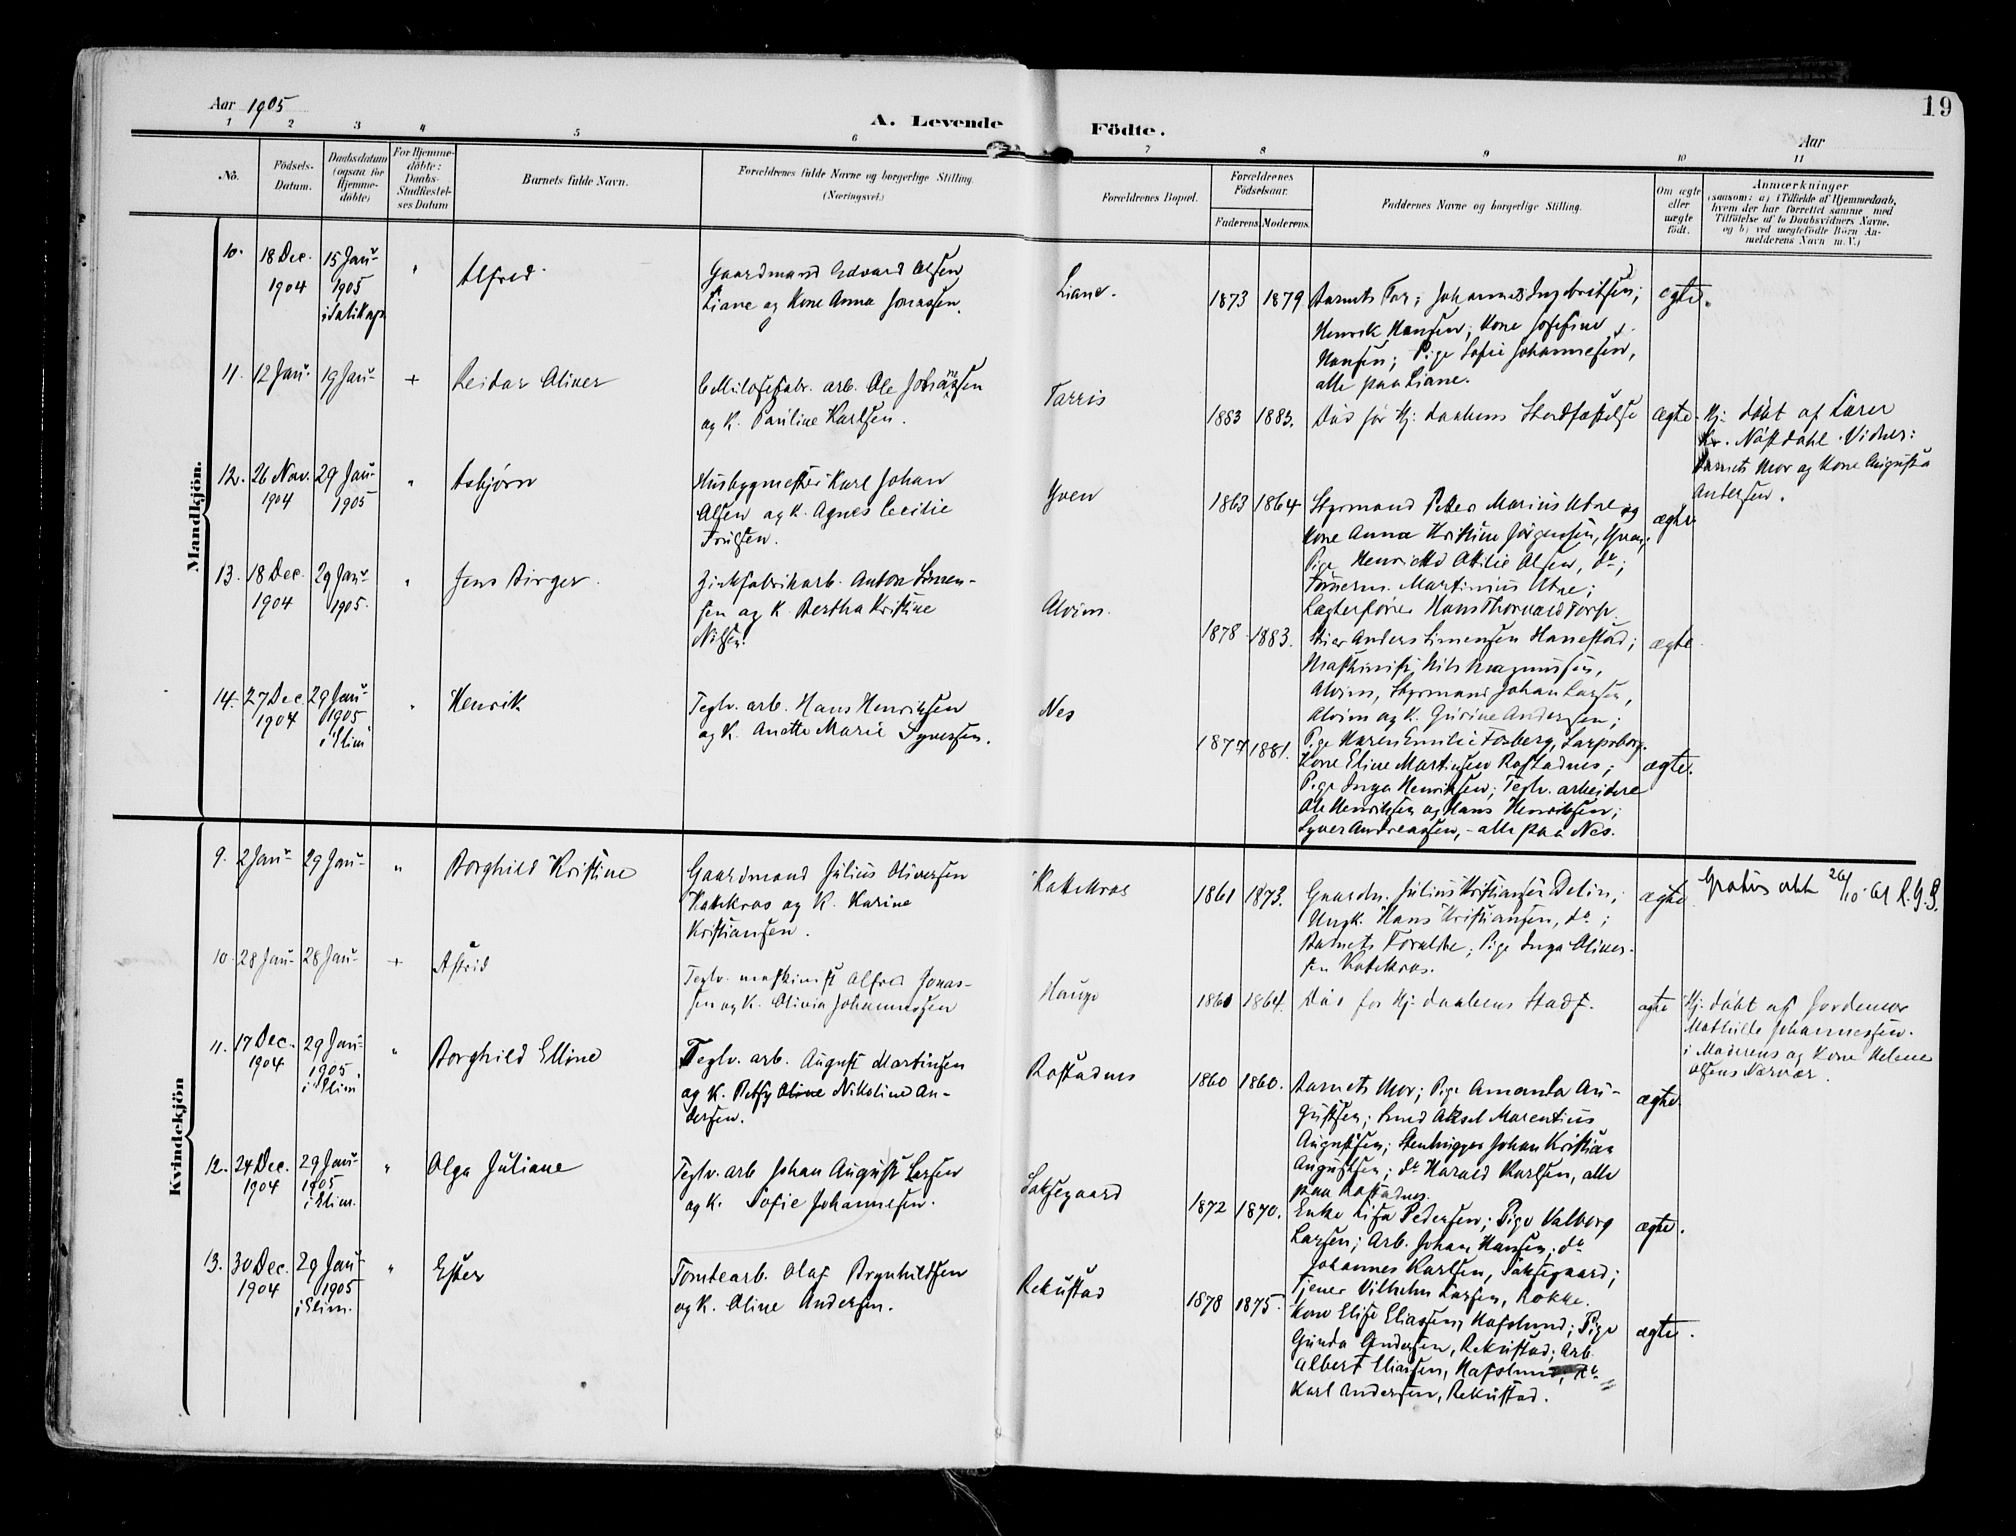 Aar 1905
A. Levende Födte.
19
Aar
1 2 3 4 5 6 7 8 9 10 11
No.
Födsels-
Datum.
Daabsdatum
(ogsaa for
Hjemme-
döbte)
For Hjemme-
döbte:
Daabs-
Stadfæstel-
ses Datum
Barnets fulde Navn.
Forældrenes fulde Navne og borgerlige Stilling.
(Næringsvei.)
Forældrenes Bopæl.
Forældrenes
Födselsaar.
Faderens. Moderens.
Faddernes Navne og borgerlige Stilling.
Om ægte
eller
uægte
födt.
Anmærkninger
(saasom: a) i Tilfælde af Hjemmedaab,
hvem der har forrettet samme med
Tilföielse af to Daabsvidners Navne,
og b) ved uegtefödte Börn An-
melderens Navn m. V.)
Mandkjön.
10. 18 Dec. 1904
15 Jan 1905
"
Alfred
Gaardmand Edvard Olsen
Liane og Kone Anna Jonassen.
Liane.
1873 1879
Barnets Far; Johannes Ingebritsen;
Henrik Hansen; Kone Josefine
Hansen; Pige Sofie Johannesen,
alle paa Liane.
ægte.
11. 12 Jan 19 Jan +
Reidar Oliver
Cellulosefabr. arb. Ole Johansen
og K. Pauline Karlsen.
Tarris
1883 1883.
Död før Hj. daabens Stadfæstelse
ægte.
Hj. döbt af Lærer
Kr. Nöstdahl. Vidner:
Barnets Mor og Kone Augusta
Andersen.
12. 26 Nov. 1904
29 Jan 1905
"
Asbjørn
Husbygmester Karl Johan
Olsen og K. Agnes Cecilie
Trulsen.
Yven
1863 1864
Styrmand Peter Marius Utne og
Kone Anna Kristine Jørgensen, Yven;
Pige Henriette Otilie Olsen, do;
Tømerm. Martinius Utne;
Lagterfører Hans Thorvard Torp.
ægte
13. 18 Dec. 1904
29 Jan 1905.
"
Jens Birger
Zinkfabrikarb. Anton Simen-
sen og K. Bertha Kristine
Nilsen.
Alvim.
1878 1883.
Eier Anders Simensen Hanestad;
Maskinist Nils Magnussen,
Alvim, Styrmand Johan Larsen,
Alvim og K. Gurine Andersen;
Pige Maren Emilie Fosberg, Sarpsborg.
ægte
14. 27 Dec 1904
29 Jan 1905
i "Elim"
"
Henrik
Teglv. arb. Hans Henriksen
og K. Anette Marie Syversen.
Nes
1877 1881.
Kone Eline Martinsen Rostadnes;
Pige Inga Henriksen; Teglv. arbeidere
Ole Henriksen og Hans Henriksen;
Syver Andreassen, - alle paa Nes.
ægte.
Kvindekjön
9. 2 Jan 29 Jan "
Borghild Kristine
Gaardmand Julius Oliversen
Katekras og K. Karine
Kristiansen.
Katekras
1861 1873.
Gaardm. Julius Kristiansen Delin;
Ungk. Hans Kristiansen, do;
Barnets Forældre; Pige Inga Oliver-
sen Katekras.
ægte
Gratis att 26/10 61
10. 28 Jan 28 Jan +
Astrid
Teglv. maskinist Alfred Jonas-
sen og K. Olivia Johannessen
Hauge
1860 1864.
Död før Hj. daabens Stadf.
ægte
Hj. döbt af Jordemor
Mathilde Johannessen.
i Moderens og Kone Helene
Olsens Nærvær.
11. 17 Dec. 1904
29 Jan 1905.
i Elim
"
Borghild Elline
Teglv. arb. August Martinsen
og K. Betsy Oline Nikoline An-
dersen.
Rostadnes
1860 1860.
Barnets Mor; Pige Amanda Au-
gustsen; Smed Aksel Marentius
Augustsen; Stenhugger Johan Kristian
Augustsen; do Harald Karlsen, alle
paa Rostadnes.
ægte.
12. 24 Dec. 1904
29 Jan 1905
i Elim.
"
Olga Juliane
Teglv. arb. Johan August Larsen
og K. Sofie Johannesen.
Saksegaard
1872 1870.
Enke Lisa Pedersen; Pige Valborg
Larsen; Arb. Johan Hansen; do
Johannes Karlsen, Saksegaard;
Tjener Vilhelm Larsen, Rokke.
ægte.
13. 30 Dec. 1904
29 Jan 1905
i Elim.
"
Ester
Tomtearb. Olaf Brynhildsen
og K. Oline Andersen.
Rekustad
1878 1875.
Kone Elise Eliassen, Hafslund; Pige
Gunda Andersen, Rekustad; Arb.
Albert Eliassen, Hafslund;
Karl Andersen, Rekustad.
ægte.